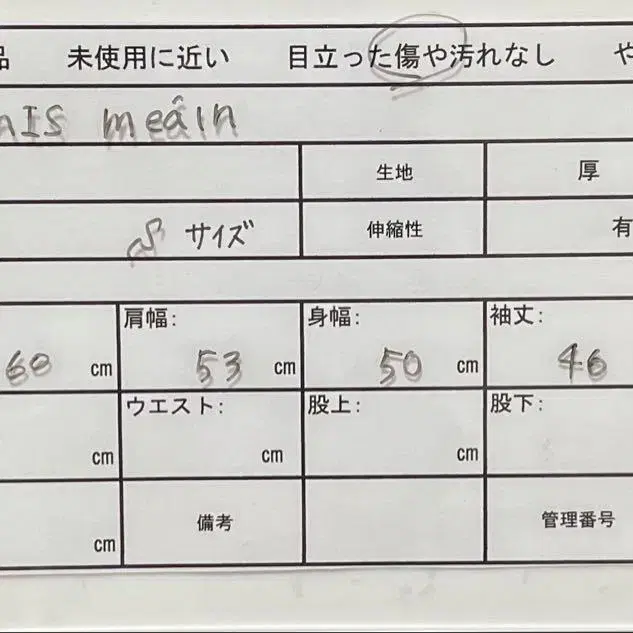 品 未使用に近い 目立った傷や汚れなし や
nIS meáin
生地 厚
S サイズ 伸縮性 有
60 cm 肩幅: 53 cm 身幅: 50 cm 袖丈: 46
cm ウエスト: cm 股上: cm 股下:
cm 備考 管理番号